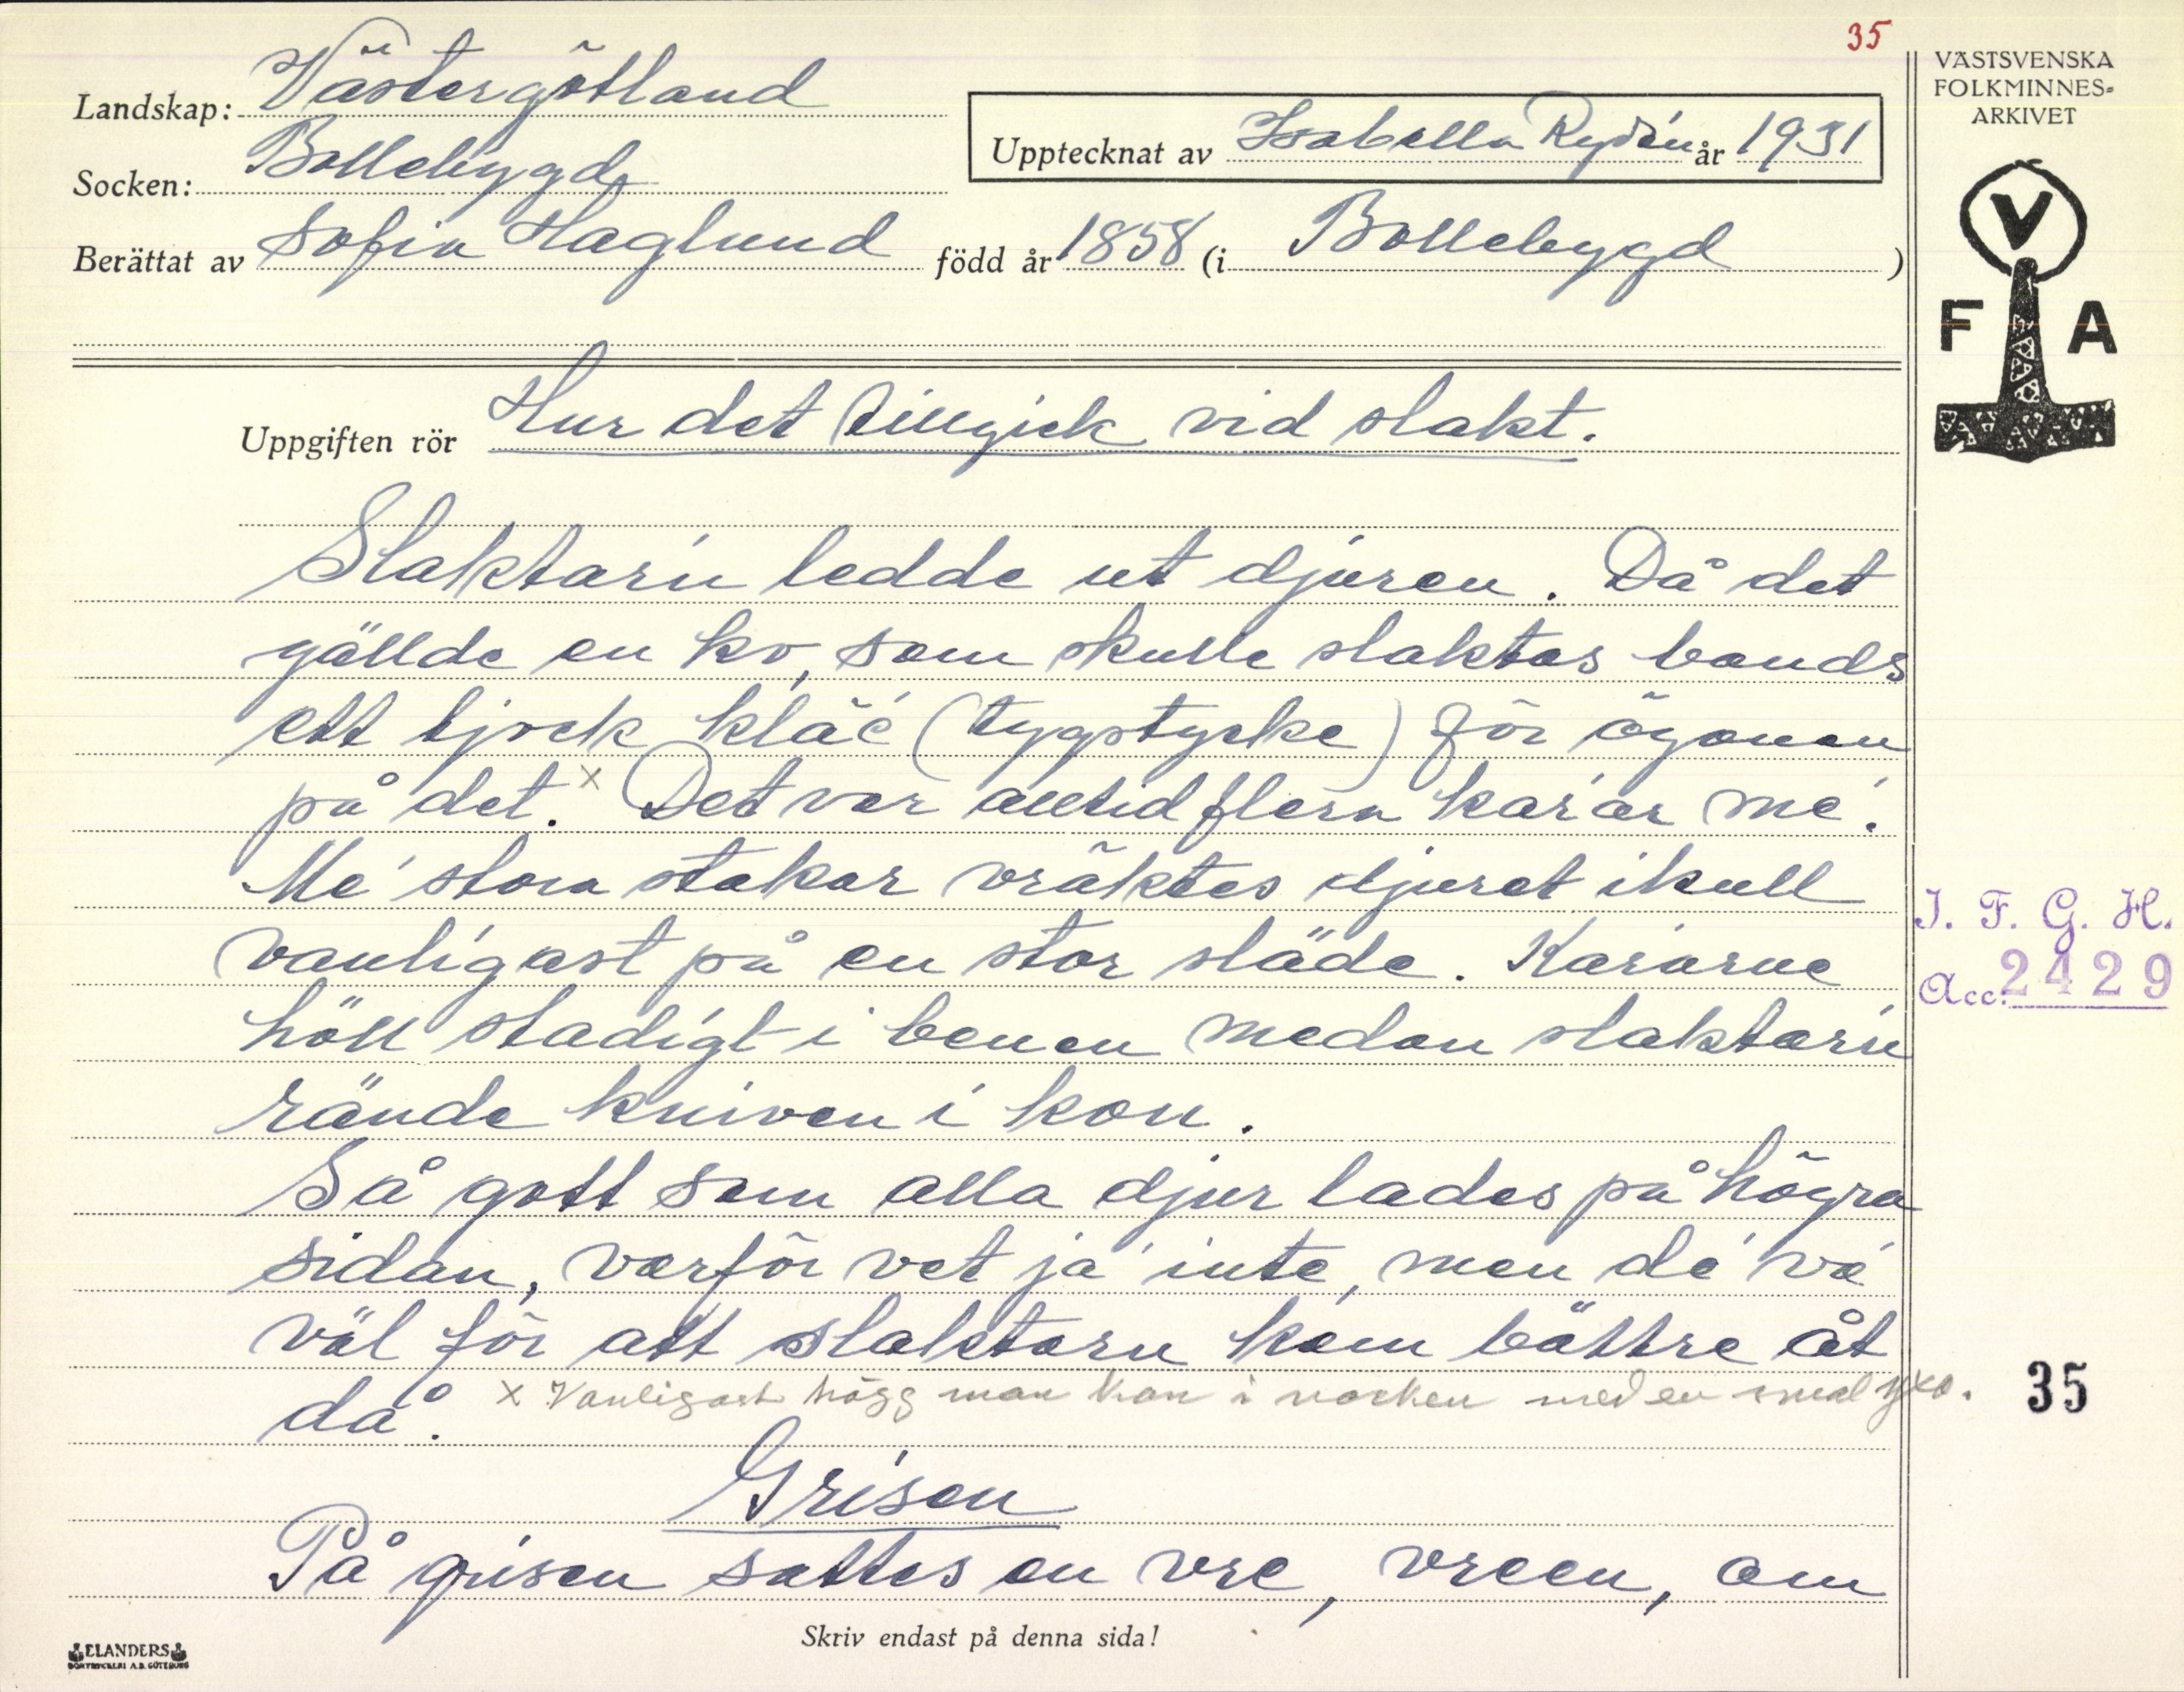 35
VÄSTSVENSKA
FOLKMINNES-
ARKIVET
Landskap: Västergötland
Upptecknat av Isabella Rydén år 1931
Socken: Bollebygd
Berättat av Sofia Haglund född år 1858 (i Bollebygd)
V
F A
Uppgiften rör Hur det tillgick vid slakt.
Slaktar'n ledde ut djuren. Då det
gällde en ko, som skulle slaktas bands
ett tjock klä' (tygstycke) för ögonen
på det.x Det var alltid flera kar'ar me'.
Me' stora stakar vräktes djuret ikull
vanligast på en stor släde. Kar'arne
höll stadigt i benen medan slaktar'n
rände kniven i kon.
Så gott som alla djur lades på högra
sidan, varför vet ja' inte, men de' va'
väl för att slaktarn kom bättre åt
då.
x Vanligast högg man kon i nacken med en smal yxa.
Grisen
På grisen sattes en vre, vreen, om
I. F. G. H.
Acc. 2429
35
Skriv endast på denna sida!
ELANDERS
BOKTRYCKERI A.B. GÖTEBORG